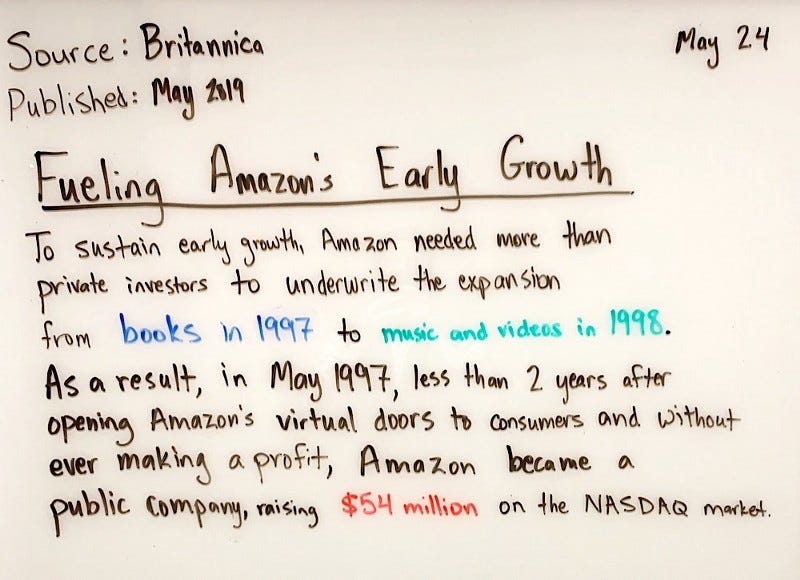 Source: Britannica
May 24
Published: May 2019
Fueling Amazon's Early Growth
To sustain early growth, Amazon needed more than
private investors to underwrite the expansion
from books in 1997 to music and videos in 1998.
As a result, in May 1997, less than 2 years after
opening Amazon's virtual doors to consumers and without
ever making a profit, Amazon became a
public company, raising $54 million on the NASDAQ market.